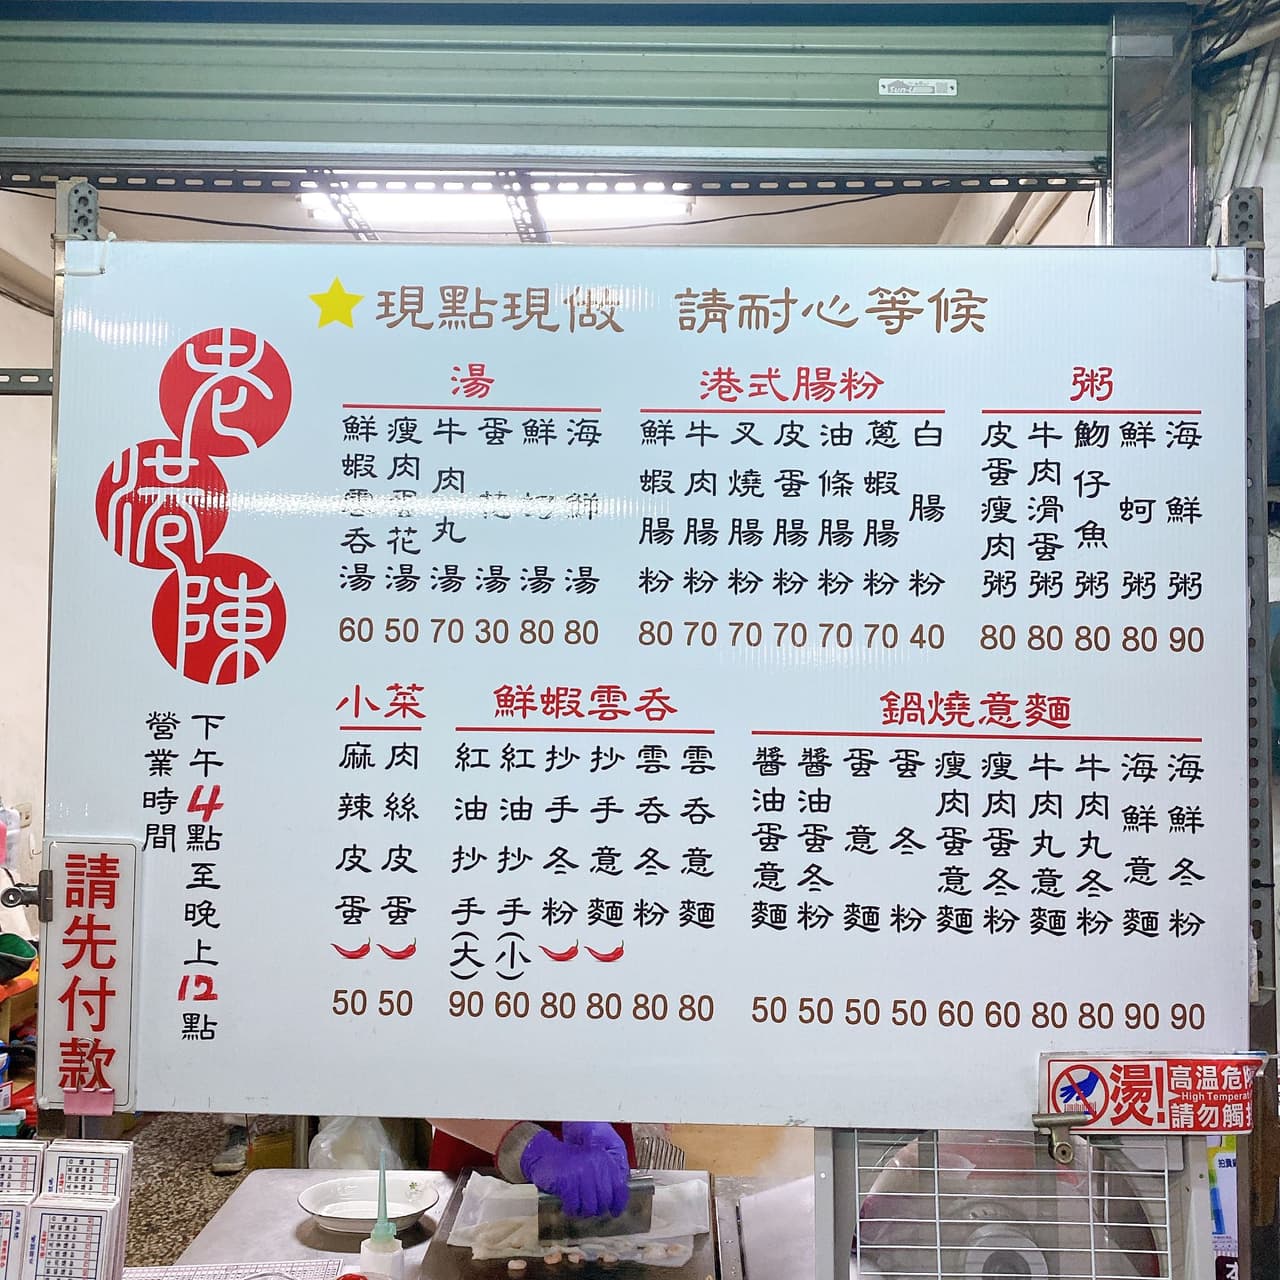 現點現做 請耐心等候
老港陳
湯
鮮蝦雲吞湯 60
瘦肉蛋花湯 50
牛肉丸湯 70
蛋花湯 30
鮮蚵湯 80
海鮮湯 80
港式腸粉
鮮蝦腸粉 80
牛肉腸粉 70
叉燒腸粉 70
皮蛋腸粉 70
油條腸粉 70
蔥蝦腸粉 70
白腸粉 40
粥
皮蛋瘦肉粥 80
牛肉滑蛋粥 80
魩仔魚粥 80
鮮蚵粥 80
海鮮粥 90
小菜
麻辣皮蛋 50
肉絲皮蛋 50
鮮蝦雲吞
紅油抄手(大) 90
紅油抄手(小) 60
抄手冬粉 80
抄手意麵 80
雲吞冬粉 80
雲吞意麵 80
鍋燒意麵
醬油蛋意麵 50
醬油蛋冬粉 50
蛋意麵 50
蛋冬粉 50
瘦肉蛋意麵 60
瘦肉蛋冬粉 60
牛肉丸意麵 80
牛肉丸冬粉 80
海鮮意麵 90
海鮮冬粉 90
營業時間
下午4點至晚上12點
請先付款
燙!
高溫危險
High Temperat
請勿觸摸